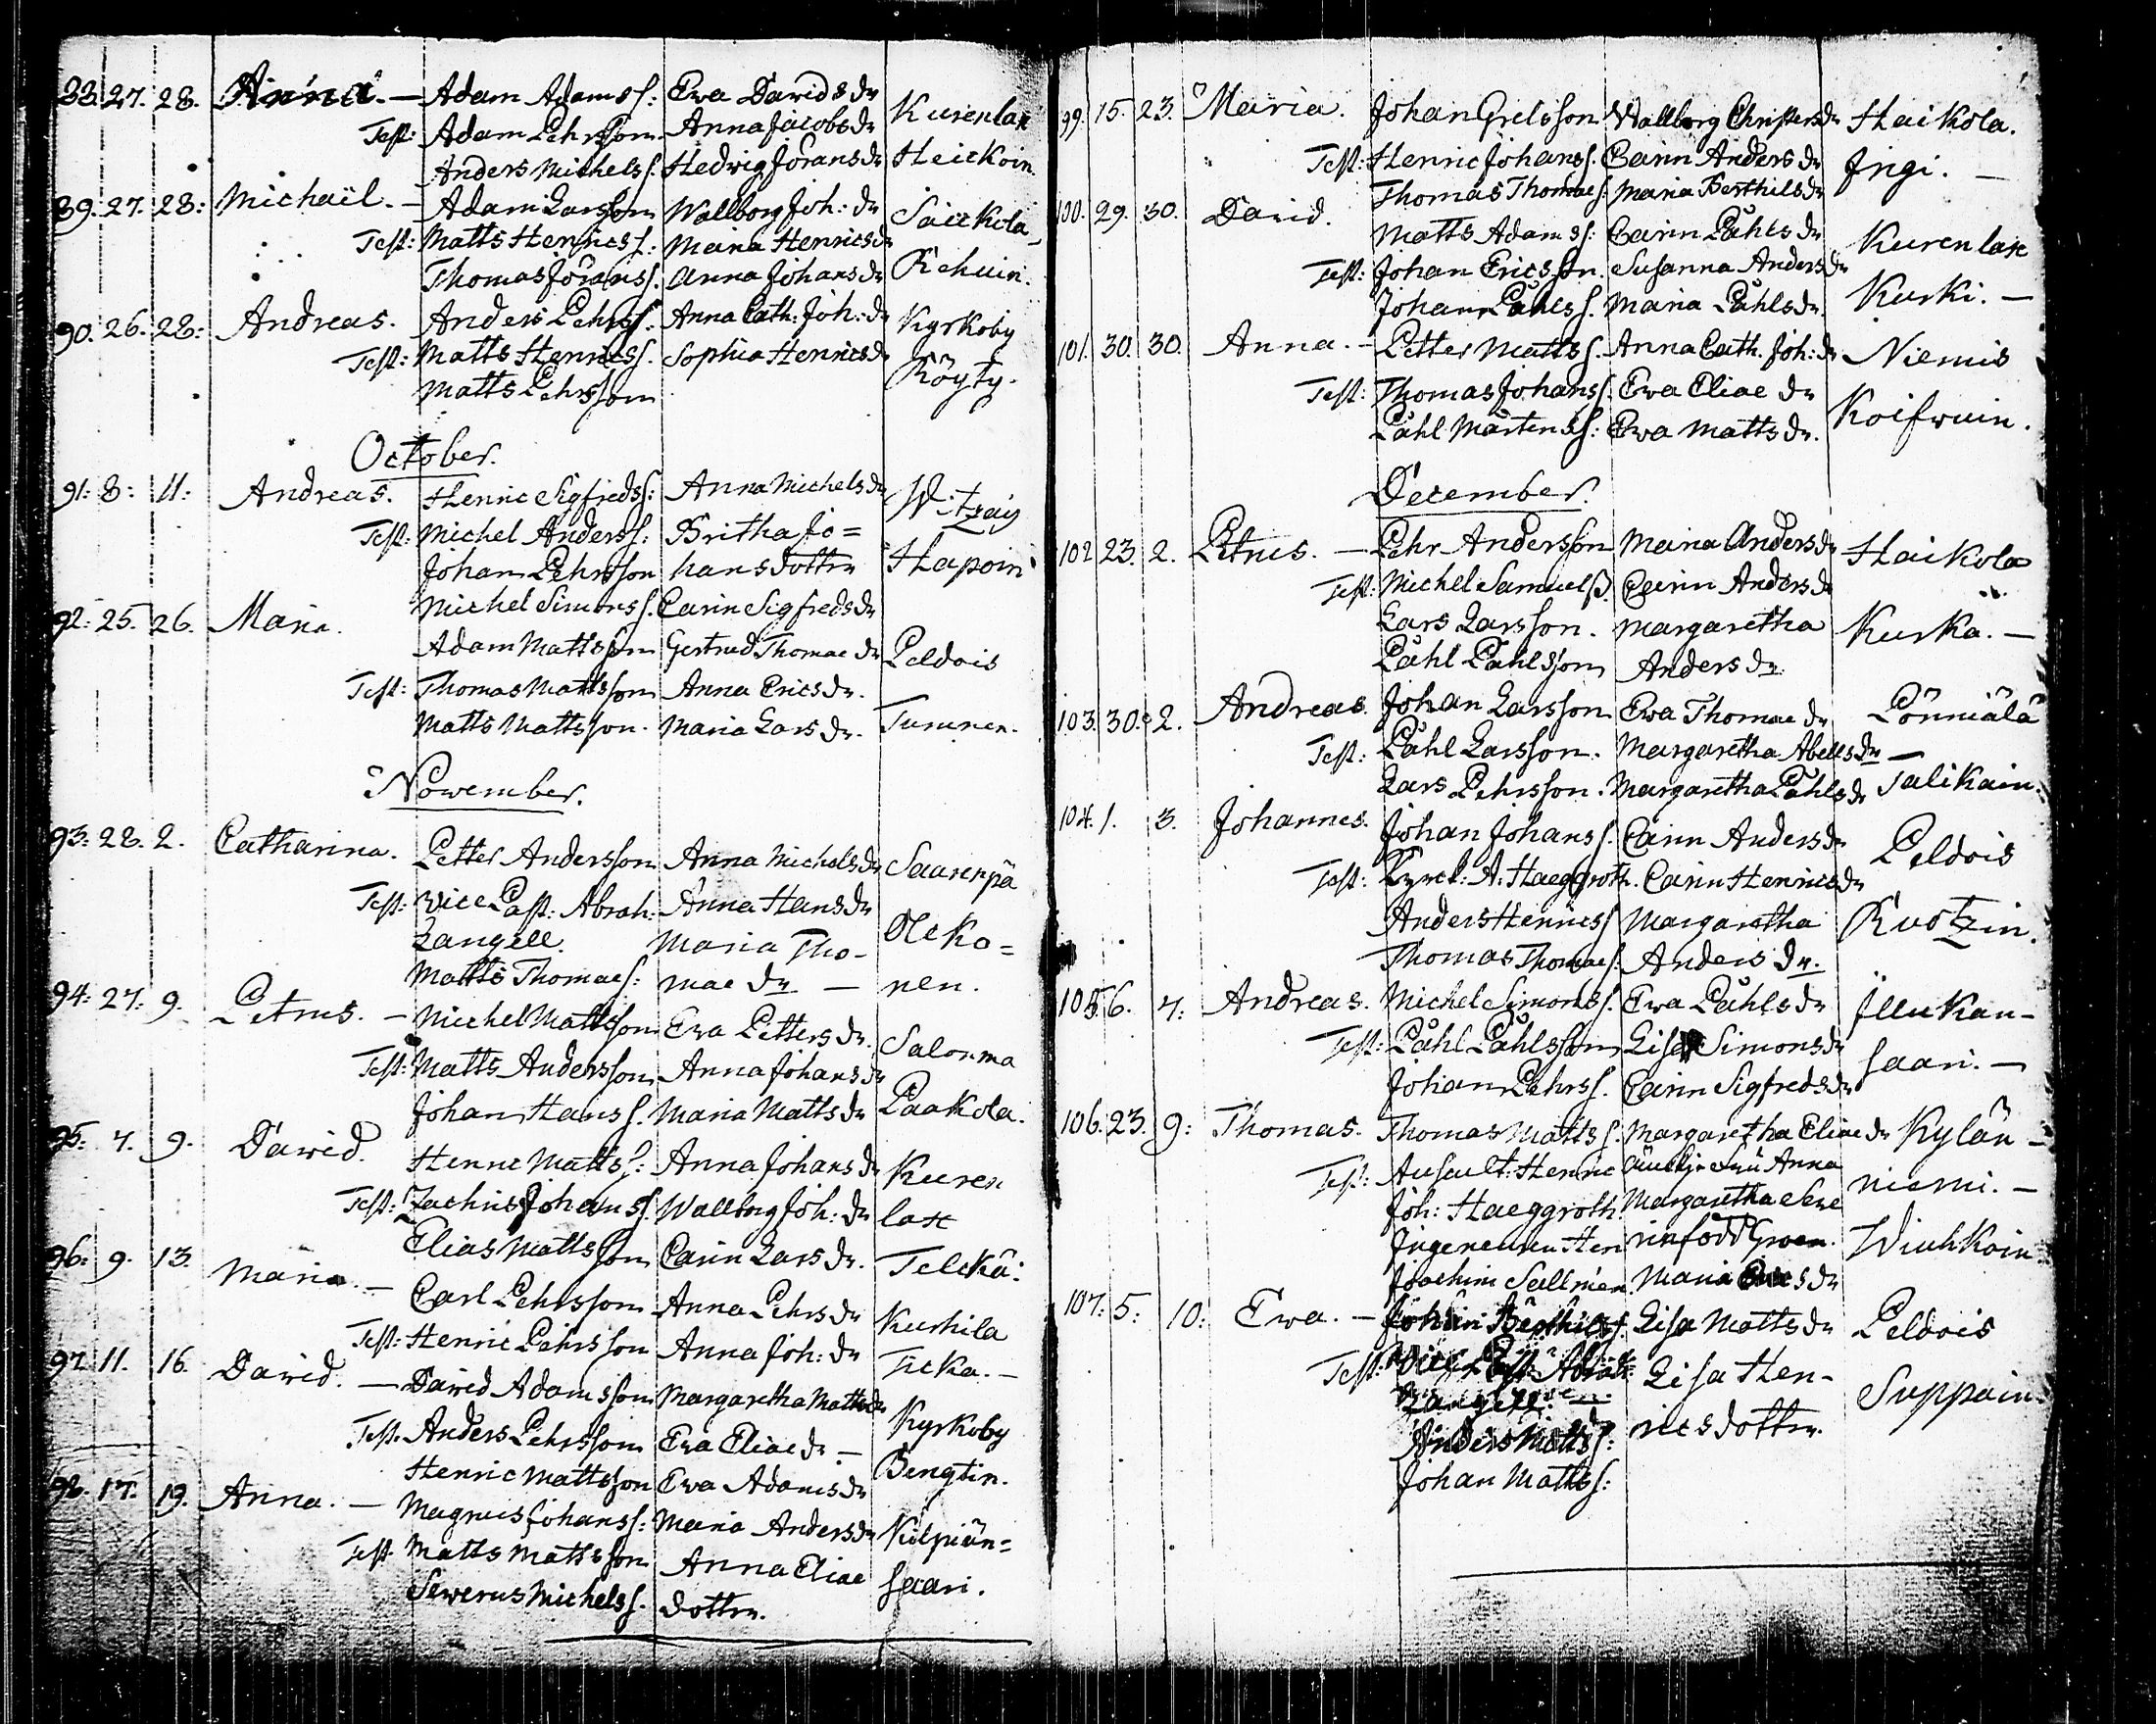 88. 27. 28. Anna. — Adam Adamss: Ewa Davids dr Kurenlax
Test: Adam Pehrsson Anna Jacobs dr
Anders Michels s. Hedwig Jörans dr Heickoin
89. 27. 28: Michaël. — Adam Larsson Wallborg Joh: dr Säickola
Test: Matts Henricss: Maria Henrics dr
Thomas Jöranss. Anna Johans dr Rehuin.
90. 26. 28: Andreas. Anders Pehrss: Anna Cath: Joh: dr Kyrkoby
Test: Matts Henricss. Sophia Henrics dr Röyty.
Matts Pehrsson
October.
91: 8: 11: Andreas. Henric Sigfredss: Anna Michels dr
Test: Michel Anderss: Britha Jo=
Johan Pehrsson hans dotter Hapoin
Michel Simonss. Carin Sigfreds dr
92: 25. 26. Maria. Adam Mattsson Gertrud Thomae dr Peldois
Test: Thomas Mattsson Anna Erics dr.
Matts Mattsson. Maria Lars dr. Tummen.
November.
93: 28. 2. Catharina. Petter Andersson Anna Michels dr Saarenpä
Test: Vice Past: Abrah: Anna Hans dr
Zangell. Maria Tho- Olcko=
Matts Thomae s: mae dr — nen.
94: 27. 9. Petrus. — Michel Mattsson Ewa Petters dr. Salonma
Test: Matts Andersson Anna Johans dr
Johan Hanss. Maria Matts dr Paakola.
95: 7. 9. David. Henric Matts s: Anna Johans dr Kuren
Test: Zachris Johans s. Wallborg Joh: dr lax
Elias Mattsson Carin Lars dr. Telckä:
96: 9. 13. Maria. — Carl Pehrsson Anna Pehrs dr Kurkila
Test: Henric Pehrsson Anna Joh: dr Ticka. —
97. 11. 16. David. — David Adamsson Margaretha Matts dr Kyrkoby
Test. Anders Pehrsson Ewa Eliae dr —
Henric Mattsson Ewa Adams dr Bengtin.
98. 17. 19. Anna. — Magnus Johanss: Maria Anders dr Kilpiän=
Test. Matts Mattsson Anna Eliae
Sewerus Michels s. dotter. saari.
99. 15. 23. Maria. Johan Grelsson Wallborg Christers dr Haikola.
Test: Henric Johanss. Carin Anders dr Ingi. —
Thomas Thomae s: Maria Berthils dr
100. 29. 30. David. Matts Adamss: Carin Påhls dr Kurenlax
Test: Johan Ericsson. Susanna Anders dr
Johan Påhls s. Maria Påhls dr. Kurki. —
101. 30. 30. Anna. — Petter Matts s. Anna Cath. Joh: dr Niemis
Test: Thomas Johanss: Ewa Eliae dr
Påhl Mårtens s: Ewa Matts dr. Koifwuin.
December.
102 23. 2. Petrus. — Pehr Andersson Maria Anders dr Haikola
Test: Michel Samuels s. Carin Anders dr
Lars Larsson. Margaretha Kurka. —
Påhl Påhlsson Anders dr.
103. 30. 2. Andreas. Johan Larsson Ewa Thomae dr Pönniälä
Test: Påhl Larsson. Margaretha Abels dr —
Lars Pehrsson. Margaretha Påhls dr Talikain.
104. 1. 3. Johannes. Johan Johanss. Carin Anders dr Peldois
Test: A: Haeggroth. Carin Henrics dr
Anders Henrics s Margaretha
Thomas Thomae s: Anders dr.
105 6. 7: Andreas. Michel Simonss. Ewa Påhls dr Illukan-
Test: Påhl Påhlsson Lisa Simons dr
Johan Pehrs s. Carin Sigfreds dr saari. —
106. 23. 9: Thomas. Thomas Matts s. Margaretha Eliae dr Kylän-
Test: Henric Fru Anna niemi. —
Joh: Haeggroth. Margaretha
Ingeneuren Her
Joachim Maria dr Wiuhkoin
107. 5. 10: Ewa. — Johan Berthils s. Lisa Matts dr Peldois
Test: Vice Past: Abrah: Lisa Hen-
Zangell. rics dotter. Suppain.
Anders Matts s:
Johan Matts s: